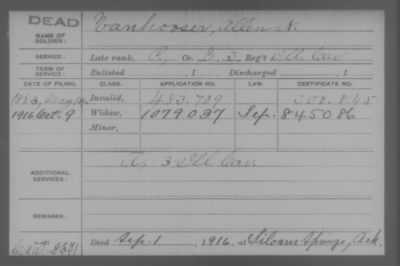 DEAD
NAME OF SOLDIER: Vanhooser, Allen N.
SERVICE: Late rank, Co. G. 3, Reg't Ill Cav
TERM OF SERVICE: Enlisted , 1 Discharged , 1
DATE OF FILING. CLASS. APPLICATION NO. LAW. CERTIFICATE NO.
1883, May Invalid, 483.709
1916 Oct. 9 Widow, 1079037 Sep. 845086
Minor,
ADDITIONAL SERVICES: 3 Ill Cav
REMARKS:
Died Sep. 1, 1916, at Siloam Springs, Ark.